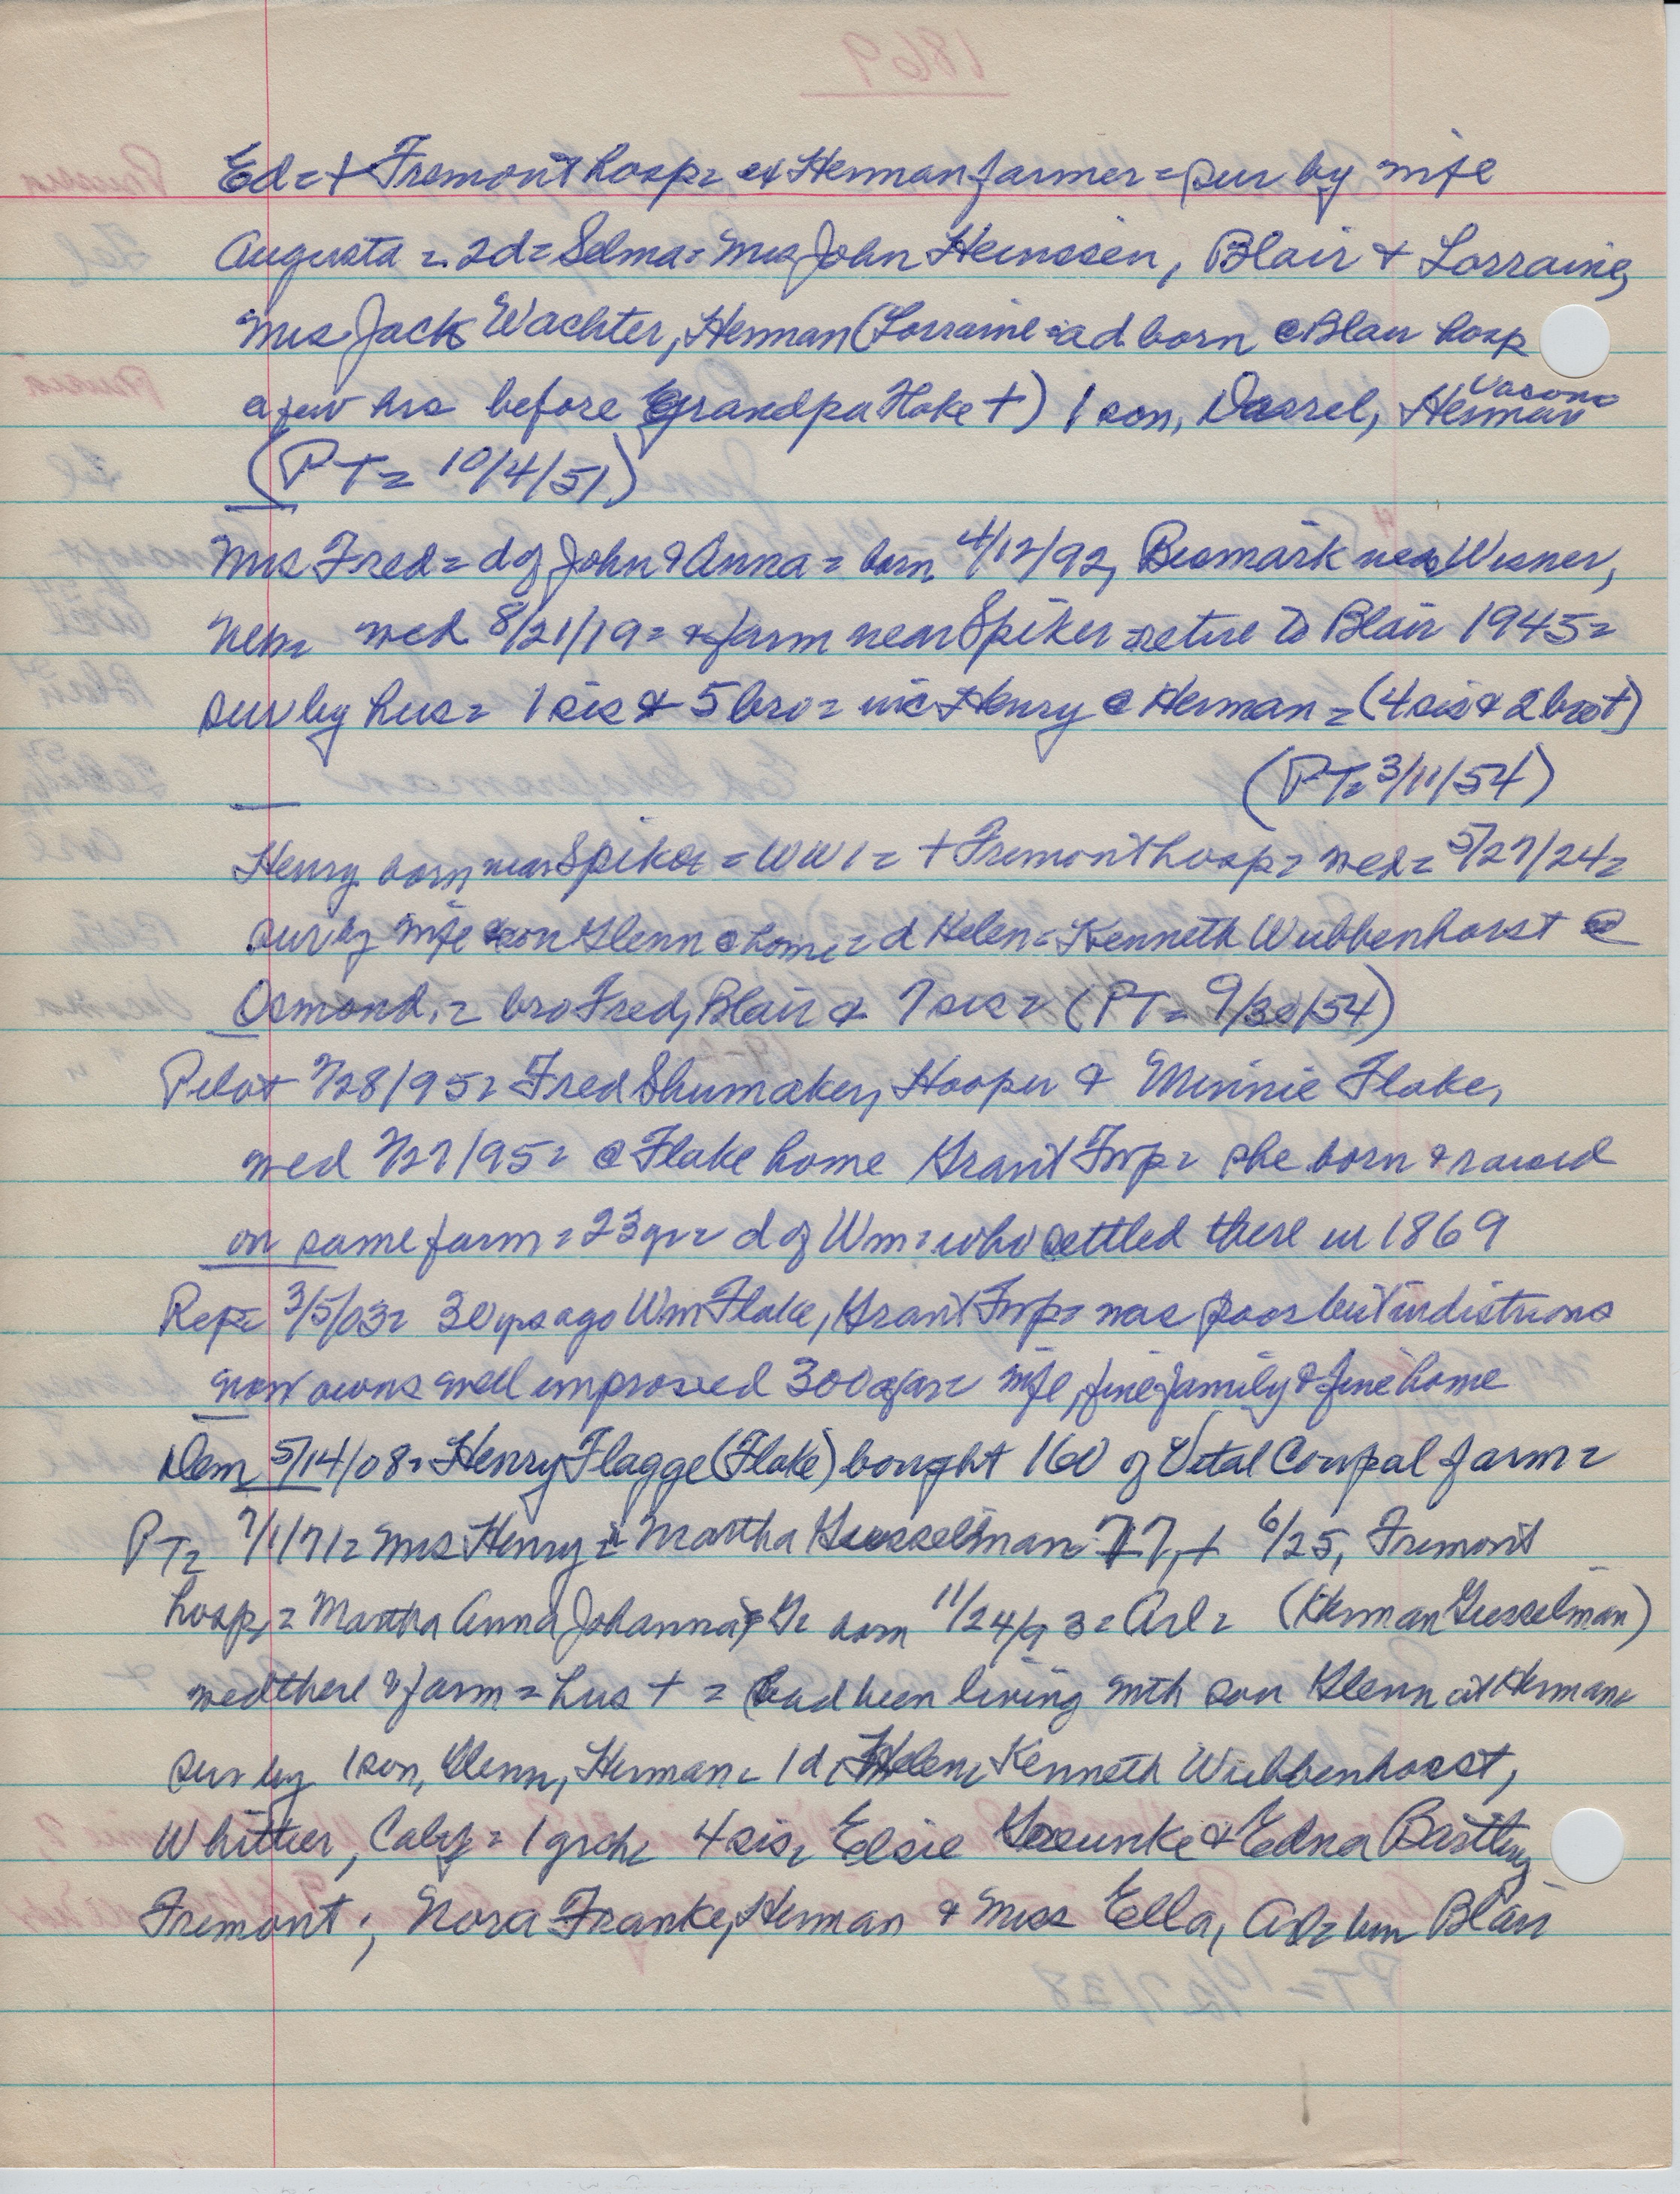 Ed = + Fremont hosp = ex Herman farmer = sur by wife
Augusta = 2d = Selma = Mrs John Heinssen, Blair & Lorraine,
Mrs Jack Wachter, Herman (Lorraine = a d born @ Blair hosp
a few hrs before Grandpa Flake +) 1 son, Darrel, Herman
(PT = 10/4/51)
Mrs Fred = d of John & Anna = born 4/12/92, Bismark near Wisner,
Neb = wed 8/21/19 = & farm near Spiker retire to Blair 1945 =
sur by hus = 1 sis & 5 bro = inc Henry @ Herman = (4 sis & 2 bro +)
(PT = 3/11/54)
Henry born near Spiker = WW1 = + Fremont hosp = wed = 5/27/24 =
sur by wife & son Glenn @ home = d Helen = Kenneth Wubbenhorst @
Osmond. = bro Fred, Blair & 7 sis = (PT = 9/30/54)
Pilot 7/28/95 = Fred Shumaker, Hooper & Minnie Flake,
wed 7/27/95 = @ Flake home Grant Twp = she born & raised
on same farm = 23 yr = d of Wm = who settled there in 1869
Rep = 3/5/03 = 30 yrs ago Wm Flake, Grant Twp = was poor but industrious
now owns well improved 300 a far = wife, fine family & fine home
Dem 5/14/08 = Henry Flagge (Flake) bought 160 of Vital Coupal farm =
PT = 7/1/71 = Mrs Henry = Martha Giesselman 77, + 6/25, Fremont
hosp, = Martha Anna Johanna G = born 11/24/93 = Arl = (Herman Giesselman)
wed there & farm = hus + = (had been living with son Glenn at Herman =
sur by 1 son, Glenn, Herman = 1 d, Helen, Kenneth Wubbenhorst,
Whittier, Calif = 1 grch = 4 sis = Elsie & Edna
Fremont; Nora Franke, Herman & Miss Ella, Arl = bur Blair